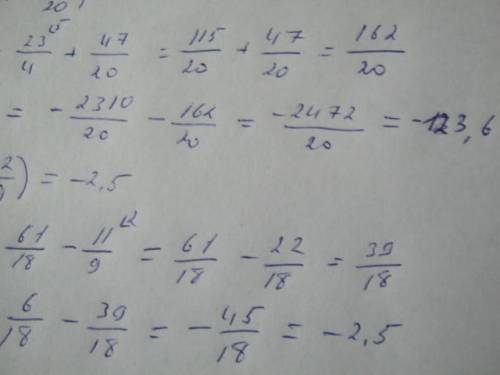 20
23⁵/4 + 47/20 = 115/20 + 47/20 = 162/20
= - 2310/20 - 162/20 = -2472/20 = -123,6
) = -2,5
61/18 - 11^(2/9 = 61/18 - 22/18 = 39/18
6/18 - 39/18 = - 45/18 = -2,5